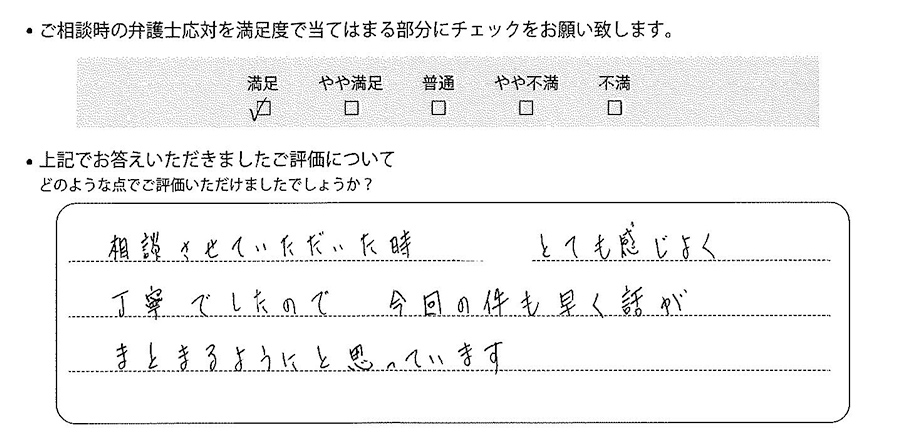 • ご相談時の弁護士応対を満足度で当てはまる部分にチェックをお願い致します。
満足 やや満足 普通 やや不満 不満
☑ □ □ □ □
• 上記でお答えいただきましたご評価について
どのような点でご評価いただけましたでしょうか？
相談させていただいた時 とても感じよく
丁寧でしたので 今回の件も早く話が
まとまるようにと思っています